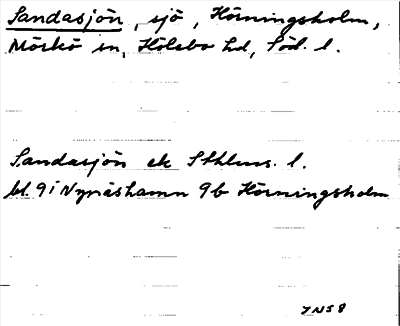 Sandasjön, sjö, Hörningsholm,
Mörkö sn, Hölebo hd, Söd. l.
Sandasjön ek Sthlms. l.
bl. 9i Nynäshamn 9b Hörningsholm
7NS8